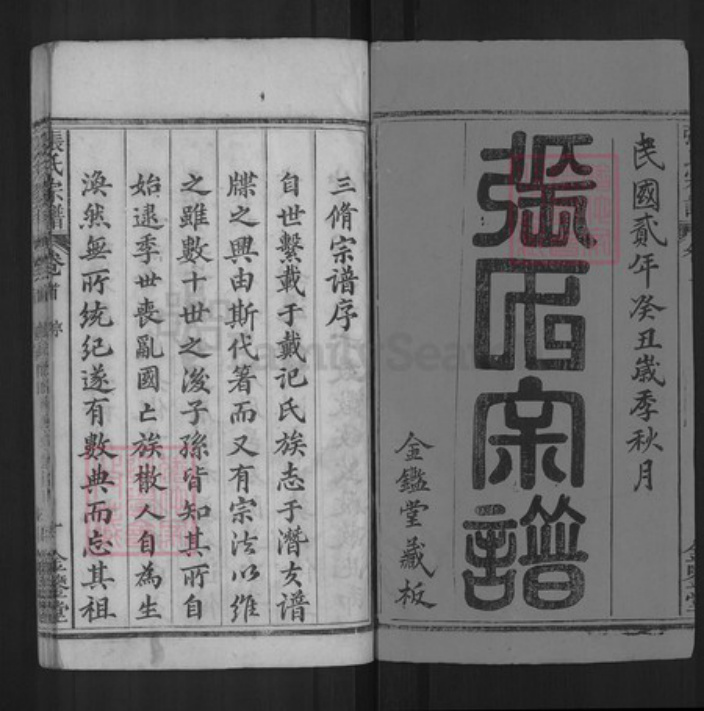 民國貳年癸丑歲季秋月
張氏宗譜
金鑑堂藏板
三脩宗谱序
自世繫載于戴記氏族志于潛友譜
牒之興由斯代箸而又有宗法以維
之雖數十世之後子孫皆知其所自
始逮季世喪亂國亡族散人自為生
渙然無所统纪遂有數典而忘其祖
張氏宗谱
卷首
序
一
金鑒堂
FamilySearch